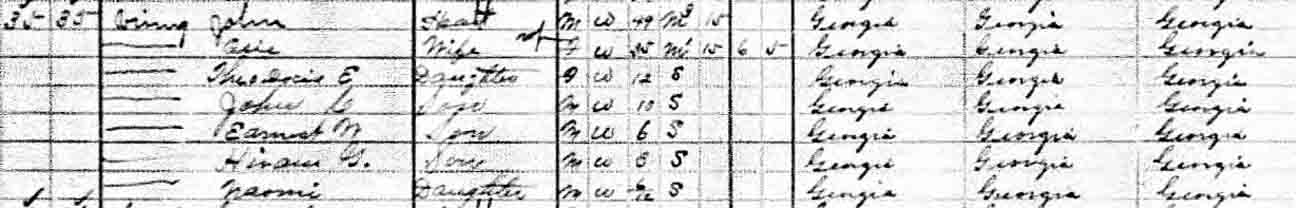 35 35 Vining John Head M W 49 M 15 Georgia Georgia Georgia
Wife F W 35 M1 15 6 5 Georgia Georgia Georgia
Theodocie E Daughter F W 12 S Georgia Georgia Georgia
John Son M W 10 S Georgia Georgia Georgia
Earnest Son M W 6 S Georgia Georgia Georgia
Hiram G. Son M W 3 S Georgia Georgia Georgia
Naomi Daughter M W S Georgia Georgia Georgia